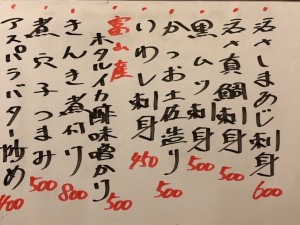 活〆しまあじ刺身 600
活〆真鯛刺身 500
黒ムツ刺身 500
かつお土佐造り 500
いわし刺身 450
富山産
ホタルイカ酢味噌かけ 500
きんき煮付け 800
煮穴子つまみ 500
アスパラバター炒め 400